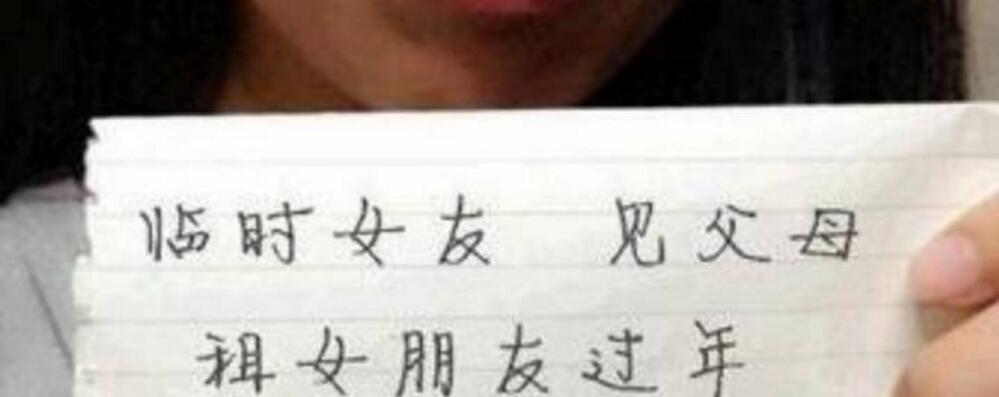 临时女友 见父母
租女朋友过年